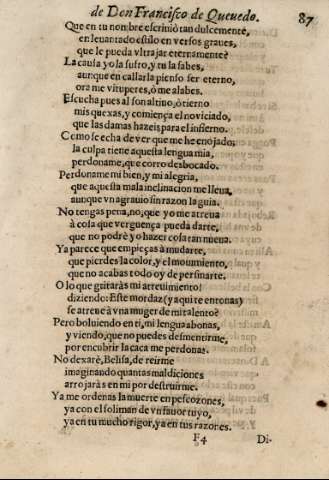 de Don Francisco de Queuedo. 87
Que en tu nombre escriuiò tan dulcemente,
en leuantado estilo en versos graues,
que le pueda vltrajar eternamente?
La causa yo la sufro, y tu la sabes,
aunque en callarla pienso ser eterno,
ora me vituperes, ò me alabes.
Escucha pues al son altino, ò tierno
mis quexas, y comiença el nouiciado,
que las damas hazeis para el infierno.
Como se echa de ver que me he enojado;
la culpa tiene aquesta lengua mia,
perdoname, que corro desbocado.
Perdoname mi bien, y mi alegria,
que aquesta mala inclinacion me lleua,
aunque vn agrauio sin razon la guia.
No tengas pena, no, que yo me atreua
à cosa que verguença pueda darte,
que no podrè yo hazer cosa tan nueua.
Ya parece que empieças à mudarte,
que pierdes la color, y el mouimiento,
que no acabas todo oy de persinarte.
O lo que gritaràs mi atreuimiento!
diziendo: Este mordaz (y aqui te entonas)
se atreue à vna muger de mi talento?
Pero boluiendo en ti, mi lengua abonas,
y viendo, que no puedes desmentirme,
por encubrir la caca me perdonas.
No dexarè, Belisa, de reirme
imaginando quantas maldiciones
arrojaràs en mi por destruirme.
Ya me ordenas la muerte en pescozones,
ya con el soliman de vn fauor tuyo,
ya en tu mucho rigor, ya en tus razones.
F4 Di-